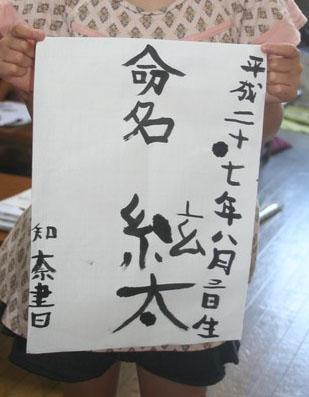 平成二十七年八月日生
命名 絃太
知奈書